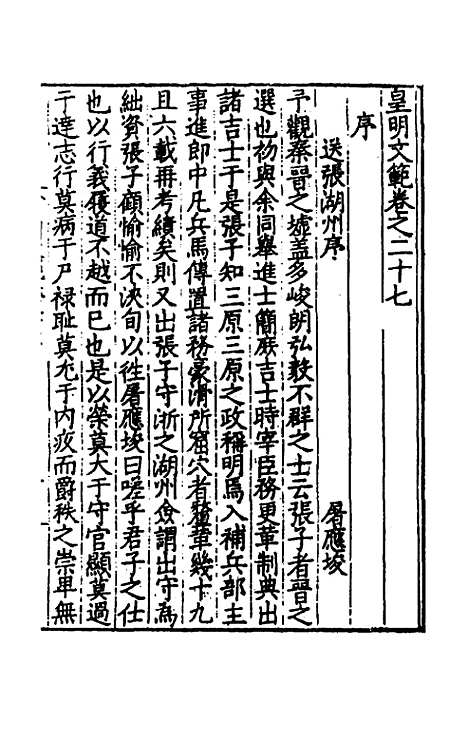 皇明文範卷之二十七
序
送張湖州序 屠應埈
予觀秦晉之墟蓋多峻朗弘毅不群之士云張子者晉之
選也初與余同舉進士簡庶吉士時宰臣務更革制典出
諸吉士于是張子知三原三原之政稱明焉入補兵部主
事進郎中凡兵馬傳置諸務豪滑所窟穴者釐革幾十九
且六載再考績矣則又出張子守浙之湖州僉謂出守為
絀資張子顧愉愉不浹旬以徃屠應埈曰嗟乎君子之仕
也以行義履道不越而巳也是以榮莫大于守官顯莫過
于達志行莫病于尸禄耻莫尤于内疚而爵秩之崇卑無